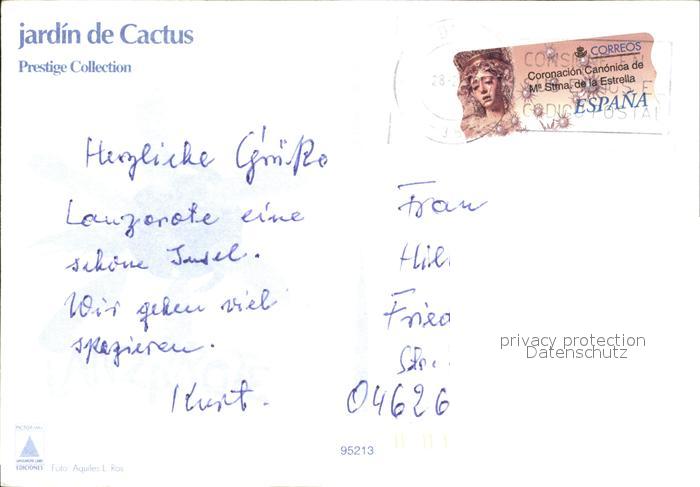 jardín de Cactus
Prestige Collection
CORREOS
Coronación Canónica de
Mª Stma. de la Estrella
ESPAÑA
Herzliche Grüße
Lanzarote eine
schöne Insel.
Wir gehen viel
spazieren.
Kurt.
Frau
Hil
Fried
Str.
04626
privacy protection
Datenschutz
95213
EDICIONES
Foto: Aquiles L. Ros